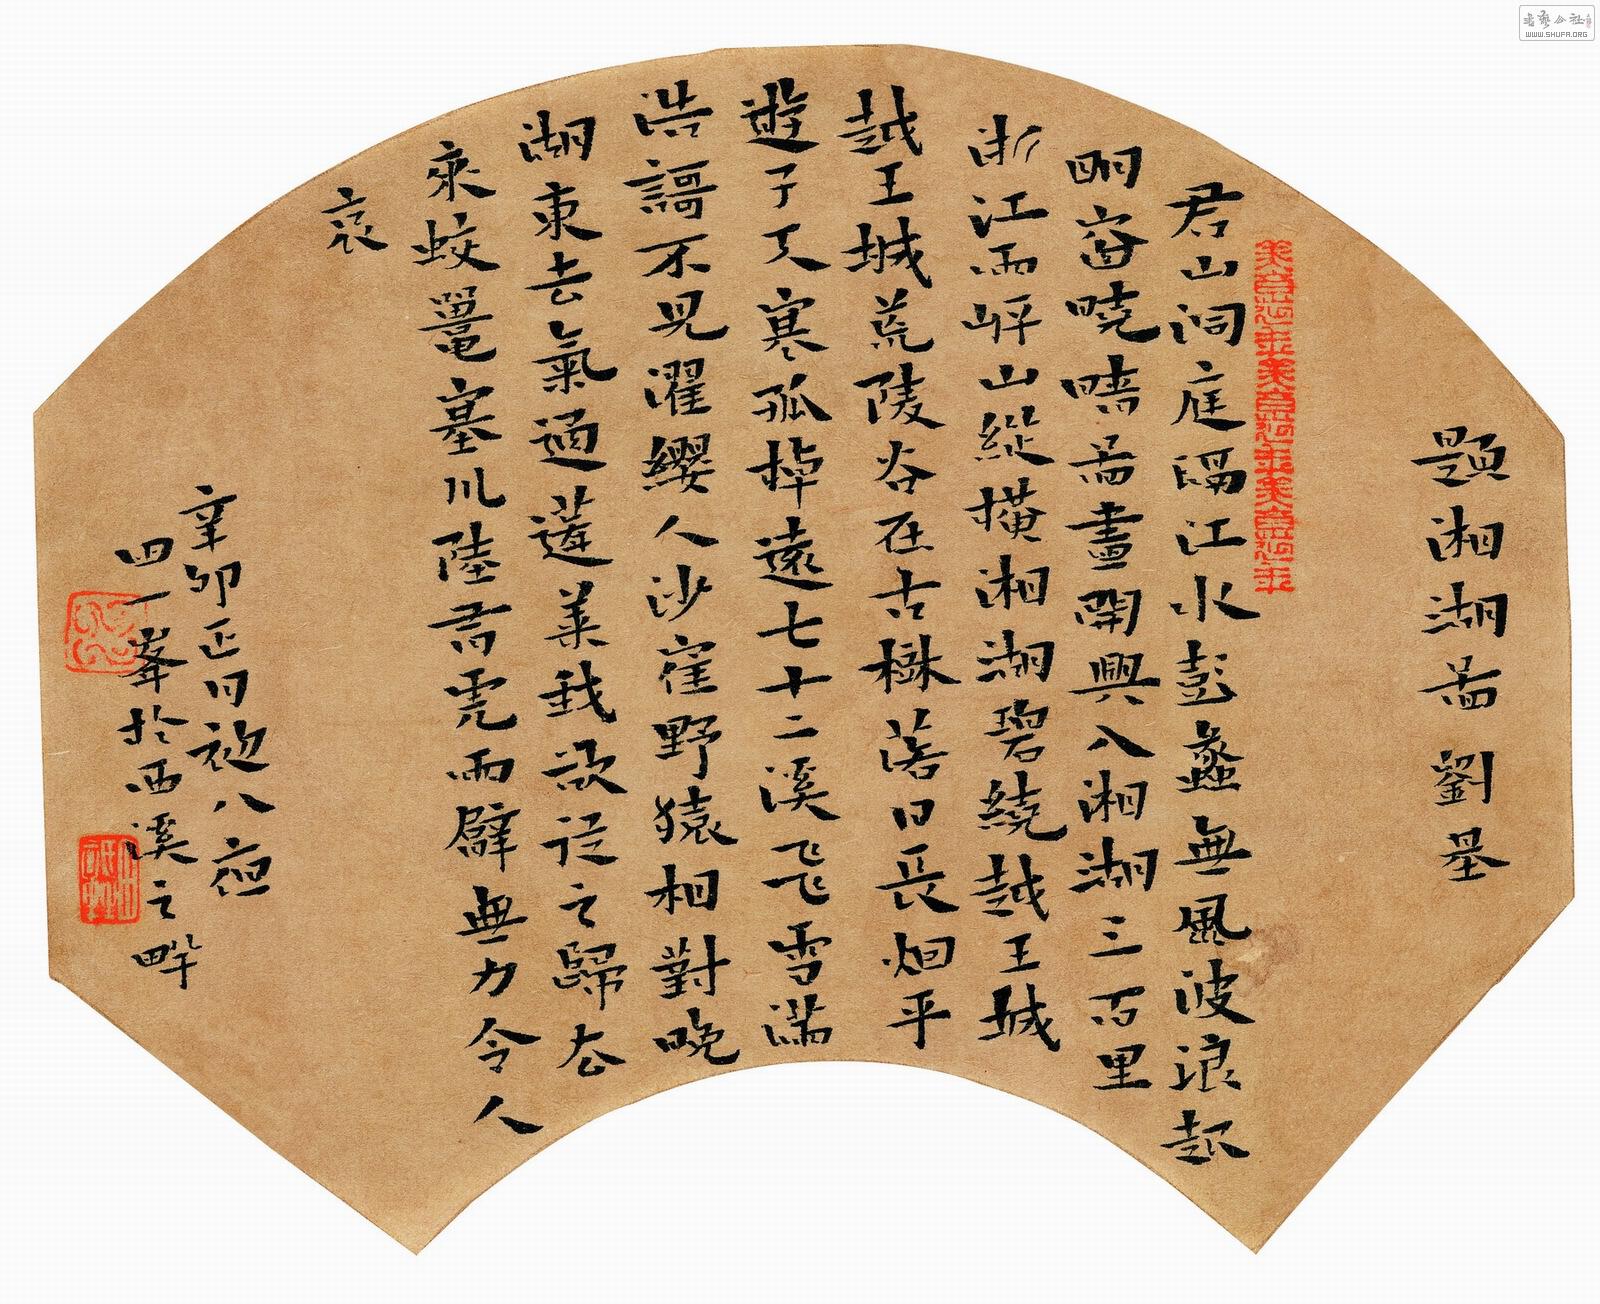 題湘湖啚劉基
君山洞庭隔江水彭蠡無風波浪起
明窗曉晴啚畫開興入湘湖三百里
浙江兩岸山縱横湘湖碧繞越王城
越王城荒陵谷在古樹落日長烟平
遊子天寒孤棹遠七十二溪飛雪滿
浩謌不見濯纓人沙雀野猿相對晚
湖東去氣通蓬萊我欲從之歸去
來蛟鼉塞川陸有虎兩臂無力令人
哀
辛卯正月初八夜
四一峯於西溪之畔
書法公社
WWW.SHUFA.ORG